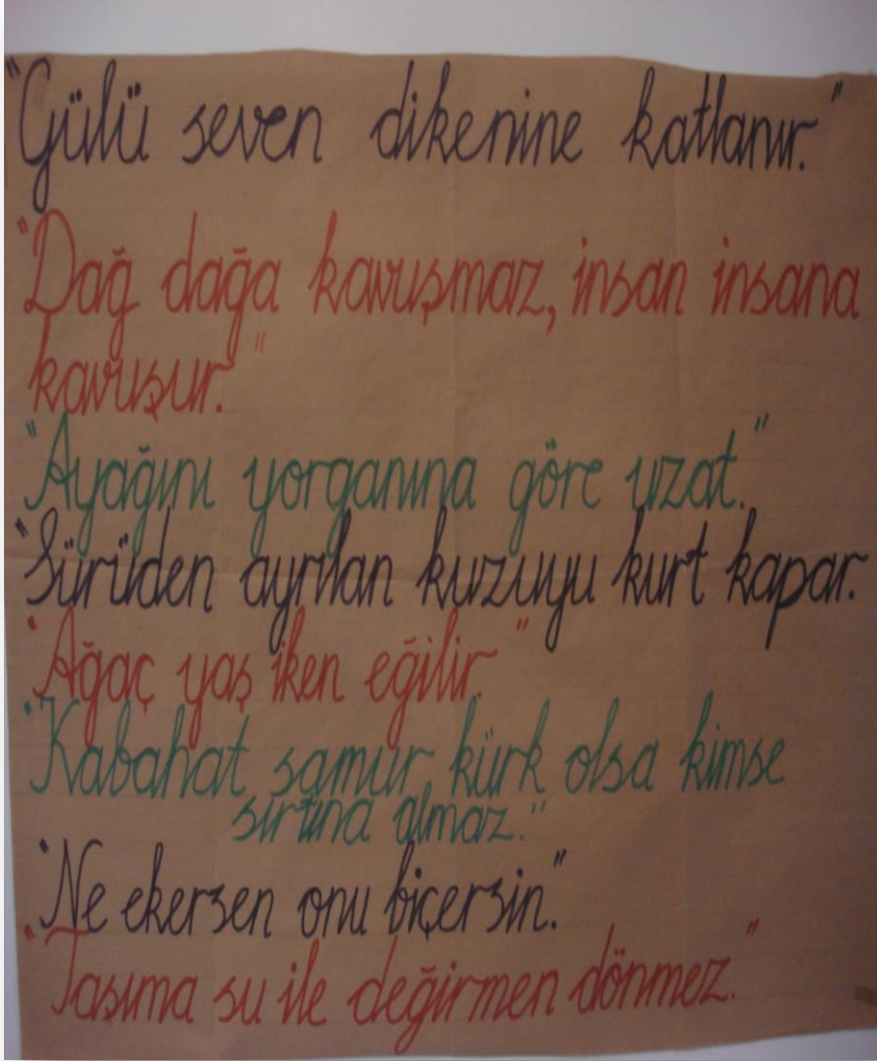 "Gülü seven dikenine katlanır."
"Dağ dağa kavuşmaz, insan insana
kavuşur."
"Ayağını yorganına göre uzat."
"Sürüden ayrılan kuzuyu kurt kapar.
"Ağaç yaş iken eğilir."
"Kabahat samur kürk olsa kimse
sırtına almaz."
"Ne ekersen onu biçersin."
"Taşıma su ile değirmen dönmez."